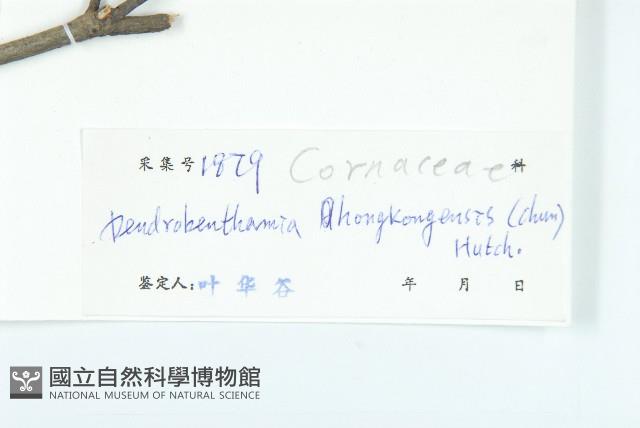 采集号 1879 Cornaceae 科
Dendrobenthamia hongkongensis (Chun)
Hutch.
鉴定人: 叶华谷 年 月 日
國立自然科學博物館
NATIONAL MUSEUM OF NATURAL SCIENCE